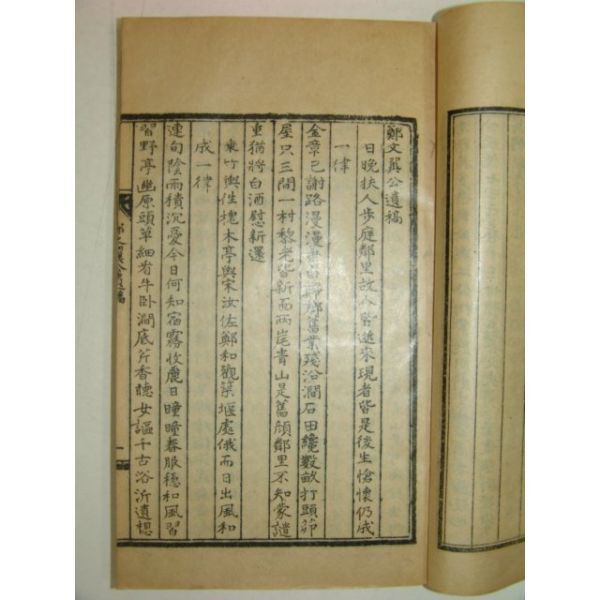 鄭文翼公遺稿
日晚扶人步庭鄰里故人皆逝來現者皆是後生愴懷仍成
一律
金章已謝路漫漫 歸鄉舊業殘沿澗石田纔數畝打頭茆
屋只三間一村黎老皆新面兩崖青山是舊顔鄰里不知蒙譴
重猶將白酒慰新還
乘竹輿往槐木亭與宋汝佐鄭和觀築堰處俄而日出風和
成一律
連旬陰雨積沉憂今日何知宿霧收麗日曈曈春服穩和風習
習野亭幽原頭草細看牛臥澗底芹香聽女謳千古浴沂遺想
鄭文翼公遺稿
一